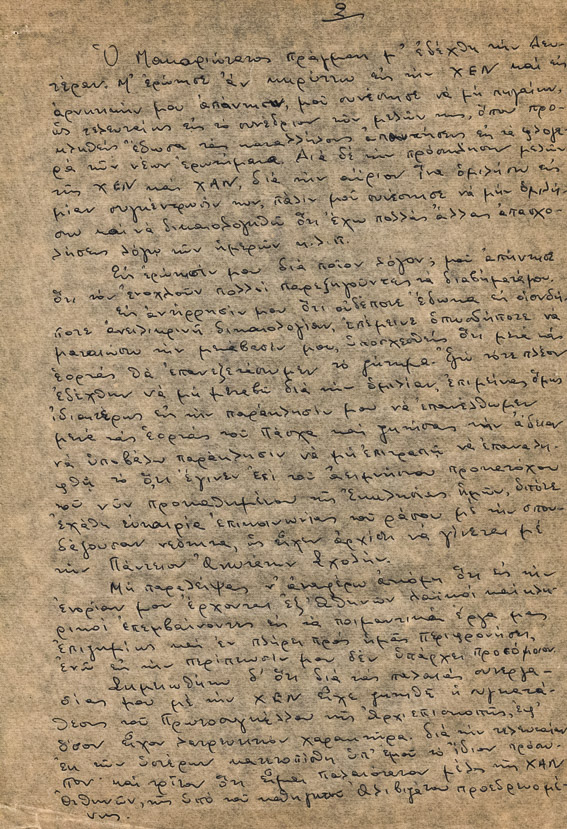 2
Ὁ Μακαριώτατος πράγματι μ' ἐδέχθη τὴν Δευ-
τέραν. Μ' ἐρώτησε ἂν κηρύττω εἰς τὴν ΧΕΝ καὶ εἰς
ἀρνητικήν μου ἀπάντησιν, μοῦ συνέστησε νὰ μὴ πηγαίνω,
ὡς τελευταίως εἰς τὸ συνέδριον τῶν μελῶν της, ὅπου προ-
κληθεὶς ἔδωσα τὰς καταλλήλους ἀπαντήσεις εἰς τὰ φλογε-
ρὰ τῶν νέων ἐρωτήματα. Διὰ δὲ τὴν πρόσκλησιν μελῶν
τῆς ΧΕΝ καὶ ΧΑΝ, διὰ τὴν αὔριον ἵνα ὁμιλήσω εἰς
μίαν συγκέντρωσίν των, πάλιν μοῦ συνέστησε νὰ μὴν ὁμιλή-
σω καὶ νὰ δικαιολογηθῶ ὅτι ἔχω πολλὰς ἄλλας ἀπασχο-
λήσεις λόγῳ τῶν ἡμερῶν κ.λ.π.
Εἰς ἐρώτησίν μου διὰ ποῖον λόγον; μοῦ ἀπήντησε
ὅτι τὸν ἐνοχλοῦν πολλοὶ παρεξηγοῦντες τὰ διαβήματά μου.
Εἰς ἀντίρρησίν μου ὅτι οὐδέποτε ἔδωκα εἰς οἱονδή-
ποτε ἀνειλικρινῆ δικαιολογίαν, ἐπέμεινε ὁπωσδήποτε νὰ
ματαιώσω τὴν μετάβασίν μου, ὑποσχεθεὶς ὅτι μετὰ τὰς
ἑορτὰς θὰ ἐπανεξετάσωμεν τὸ ζήτημα. Ἐγὼ τότε πλέον
ἐδέχθην νὰ μὴ μεταβῶ διὰ τὴν ὁμιλίαν, ἐπιμείνας ὅμως
ἰδιαιτέρως εἰς τὴν παράκλησίν μου νὰ ἐπανέλθωμεν
μετὰ τὰς ἑορτὰς τοῦ Πάσχα καὶ ζητήσας τὴν ἄδειαν
νὰ ὑποβάλω παράκλησιν νὰ μὴ ἐπιτραπῇ νὰ ἐπαναλη-
φθῇ τὸ ὅτι ἔγινεν ἐπὶ τοῦ ἀειμνήστου προκατόχου
τοῦ νῦν προκαθημένου τῆς Ἐκκλησίας ἡμῶν, ὁπότε
ἐχάθη εὐκαιρία ἐπικοινωνίας τοῦ ράσου μὲ τὴν σπου-
δάζουσαν νεότητα, ὡς εἶχεν ἀρχίσει νὰ γίνεται μὲ
τὴν Πάντειον Ἀνωτάτην Σχολήν.
Μὴ παραλείψας ν' ἀναφέρω ἀκόμη ὅτι εἰς τὴν
ἐνορίαν μου ἔρχονται ἐξ Ἀθηνῶν λαϊκοὶ καὶ κλη-
ρικοὶ ἐπεμβαίνοντες εἰς τὰ ποιμαντικὰ ἔργα μας
ἐπιζημίως καὶ ἐν πλήρει πρὸς ἡμᾶς περιφρονήσει,
ἐνῶ εἰς τὴν περίπτωσίν μου δὲν ὑπάρχει προσόμοιον.
Σημειωθήτω δ' ὅτι διὰ τὰς παλαιὰς συνεργα-
σίας μου μὲ τὴν ΧΕΝ εἶχε ζητηθῆ ἡ συγκατά-
θεσις τοῦ Πρωτοσυγκέλλου τῆς Ἀρχιεπισκοπῆς, ἐφ'
ὅσον εἶχον λατρευτικὸν χαρακτῆρα. διὰ τὴν τελευταίαν
ἐκ τῶν ὑστέρων κατετοπίσθη ὑπ' ἐμοῦ τὸ ἴδιον πρόσω-
πον· καὶ τρίτον ὅτι εἶμαι παλαιότατον μέλος τῆς ΧΑΝ
Ἀθηνῶν, τῆς ὑπὸ τοῦ καθηγητοῦ Ἀλιβιζάτου προεδρευομέ-
νης.